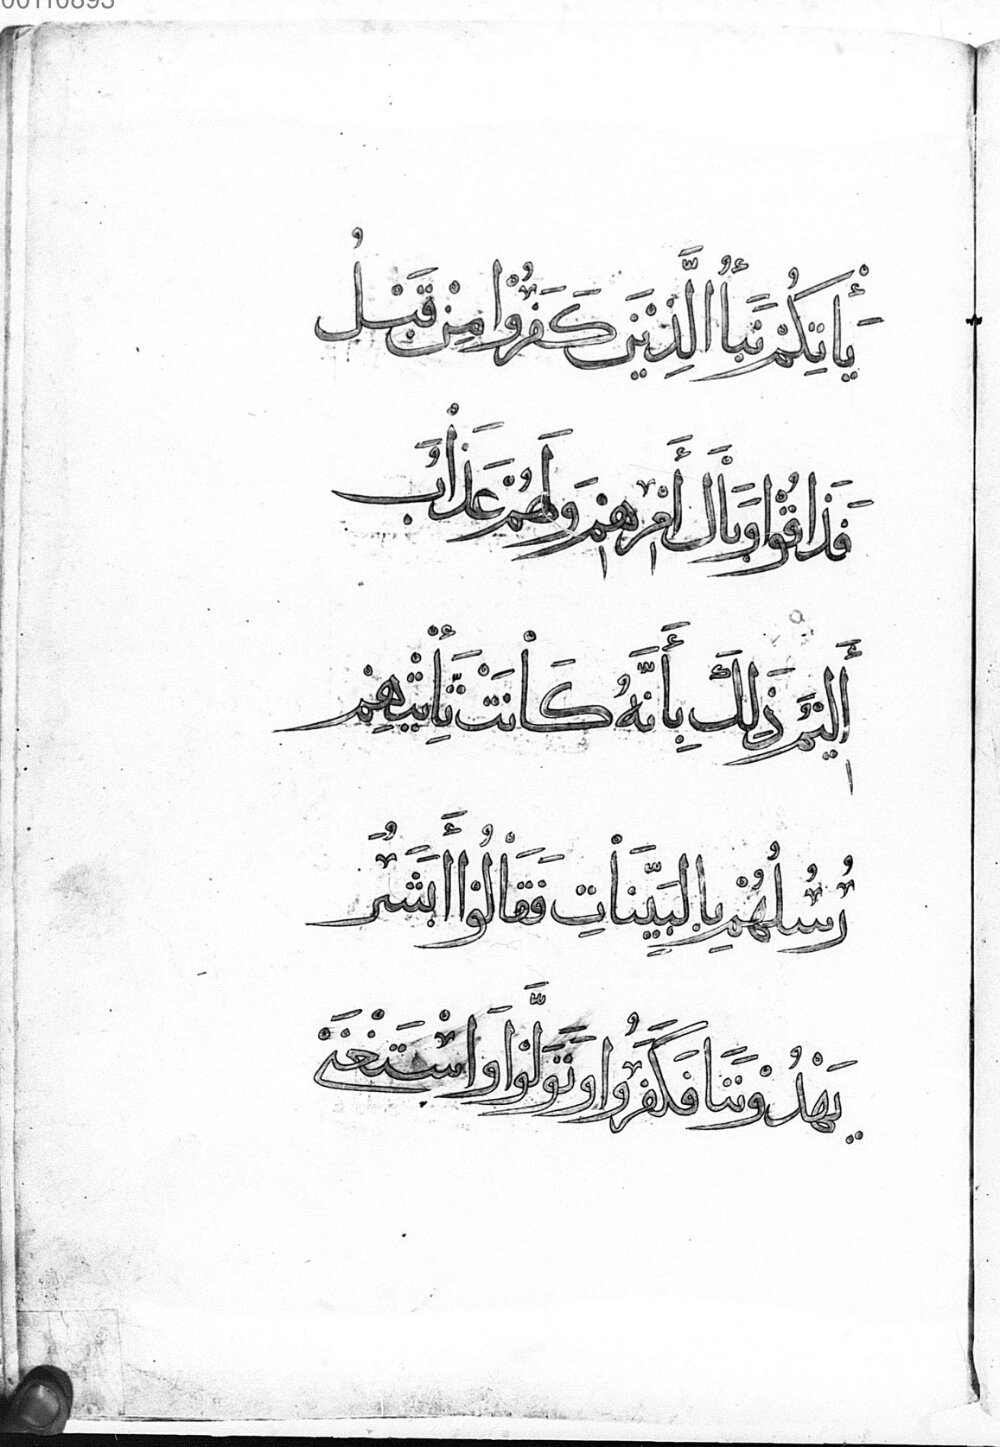 00110893
يَأْتِكُمْ نَبَأُ الَّذِيْنَ كَفَرُوْا مِنْ قَبْلُ
فَذَاقُوْا وَبَالَ أَمْرِهِمْ وَلَهُمْ عَذَابٌ
أَلِيْمٌ ذَلِكَ بِأَنَّهُ كَانَتْ تَّأْتِيْهِمْ
رُسُلُهُمْ بِالبَيِّنَاتِ فَقَالُوْا أَبَشَرٌ
يَهْدُوْنَنَا فَكَفَرُوا وَتَوَلَّوْا وَاسْتَغْنَى